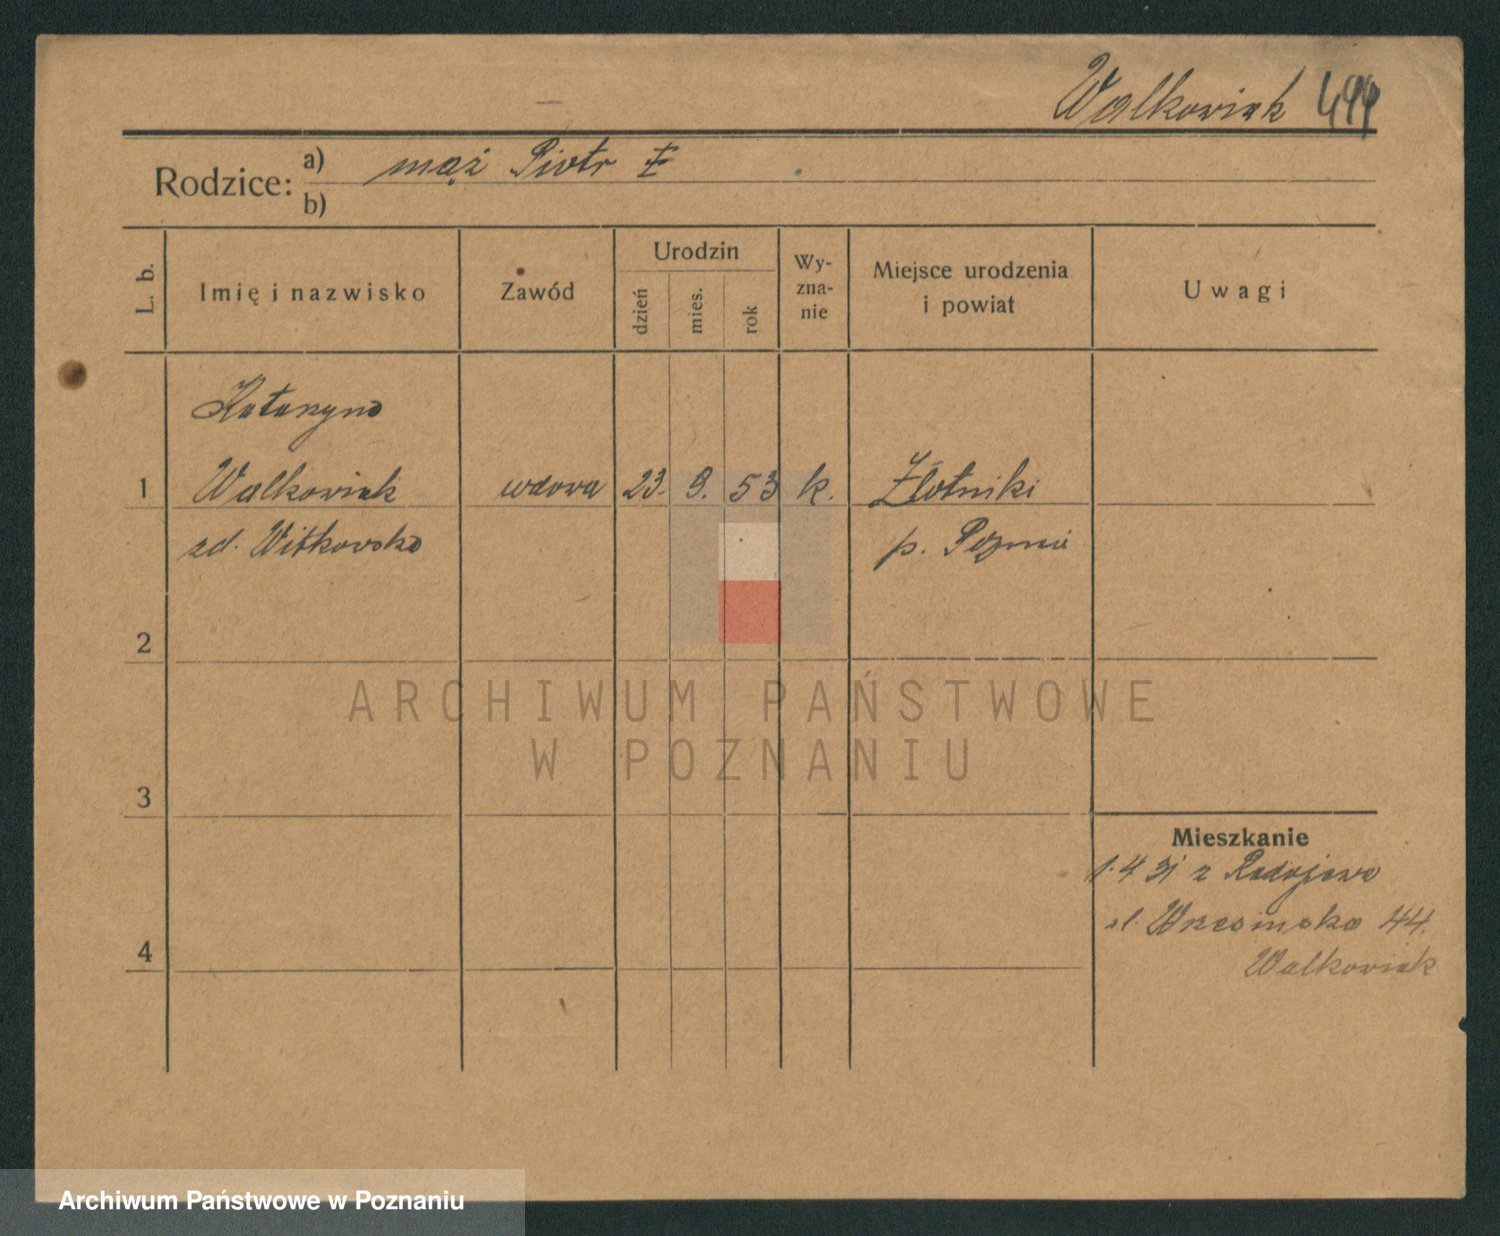 Walkowiak
Rodzice: a) mąż Piotr ‡
b)
L. b.
Imię i nazwisko
Zawód
Urodzin
dzień
mies.
rok
Wy-
zna-
nie
Miejsce urodzenia
i powiat
Uwagi
Katarzyna
1 Walkowiak wdowa 23. 9. 53 k. Złotniki
zd. Witkowska p. Poznań
2
3
4
Mieszkanie
1.4 31 z Radojewa
ul. Wrzesińska 44.
Walkowiak
ARCHIWUM PAŃSTWOWE
W POZNANIU
Archiwum Państwowe w Poznaniu